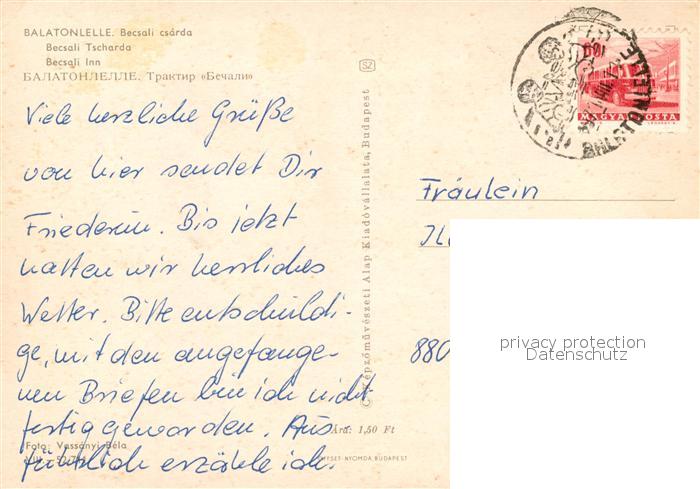 BALATONLELLE. Becsali csárda
Becsali Tscharda
Becsali Inn
БАЛАТОНЛЕЛЛЕ. Трактир «Бечали»
Viele herzliche Grüße
von hier sendet Dir
Friederun. Bis jetzt
hatten wir herrliches
Wetter. Bitte entschuldi-
ge, mit den angefange-
nen Briefen bin ich nicht
fertig geworden. Aus
führlich erzähle ich.
Foto: Vassányi Béla
Ára: 1,50 Ft
OFFSET-NYOMDA, BUDAPEST
Képzőművészeti Alap Kiadóvállalata, Budapest
SZ
MAGYAR POSTA
BALATONLELLE
Fräulein
880
privacy protection
Datenschutz